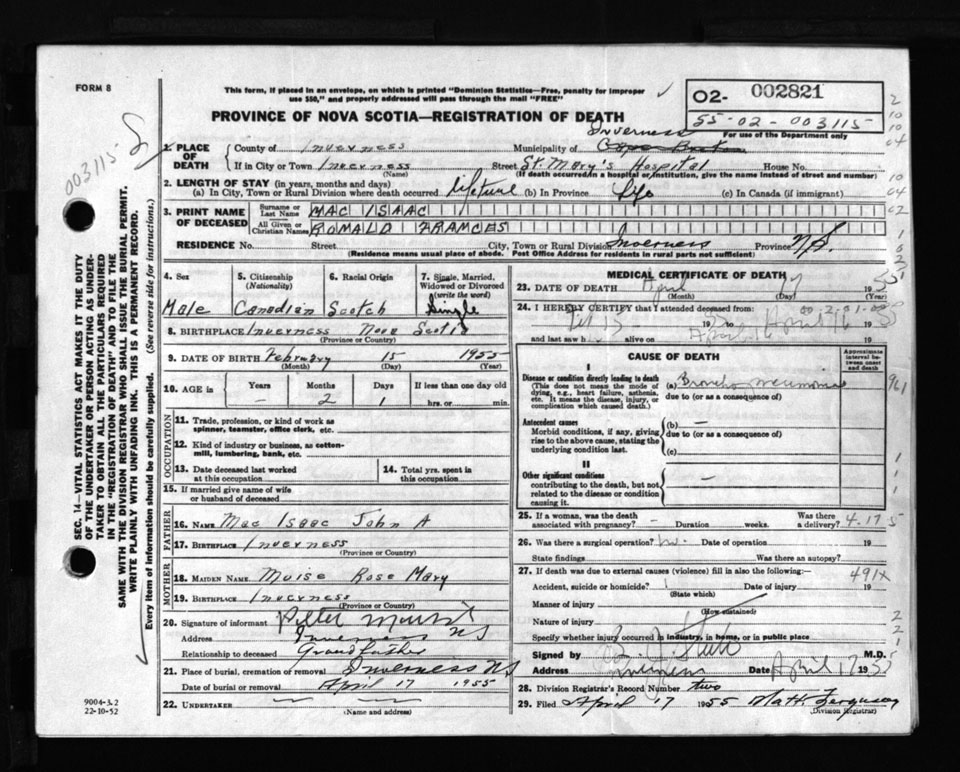 FORM 8
This form, if placed in an envelope, on which is printed "Dominion Statistics—Free, penalty for improper
use $50," and properly addressed will pass through the mail "FREE"
02- 002821
55-02-003115
For use of the Department only
PROVINCE OF NOVA SCOTIA—REGISTRATION OF DEATH
003115
SEC. 14—VITAL STATISTICS ACT MAKES IT THE DUTY
OF THE UNDERTAKER OR PERSON ACTING AS UNDER-
TAKER TO OBTAIN ALL THE PARTICULARS REQUIRED
IN THE "REGISTRATION OF DEATH" AND TO FILE THE
SAME WITH THE DIVISION REGISTRAR WHO SHALL ISSUE THE BURIAL PERMIT.
WRITE PLAINLY WITH UNFADING INK. THIS IS A PERMANENT RECORD.
Every item of information should be carefully supplied. (See reverse side for instructions.)
Inverness
1. PLACE OF DEATH County of Inverness Municipality of Cape Breton
If in City or Town Inverness Street St. Mary's Hospital House No.
(Name) (If death occurred in a hospital or institution, give the name instead of street and number)
2. LENGTH OF STAY (in years, months and days)
(a) In City, Town or Rural Division where death occurred lifetime (b) In Province Life (c) In Canada (if immigrant)
3. PRINT NAME OF DECEASED Surname or Last Name MAC ISAAC
All Given or Christian Names RONALD FRANCES
RESIDENCE No. Street City, Town or Rural Division Inverness Province N.S.
(Residence means usual place of abode. Post Office Address for residents in rural parts not sufficient)
4. Sex 5. Citizenship 6. Racial Origin 7. Single, Married,
(Nationality) Widowed or Divorced
(write the word)
Male Canadian Scotch Single
8. BIRTHPLACE Inverness Nova Scotia
(Province or Country)
9. DATE OF BIRTH February 15 1955
(Month) (Day) (Year)
10. AGE in Years Months Days If less than one day old
— 2 1 hrs. or min.
OCCUPATION
11. Trade, profession, or kind of work as
spinner, teamster, office clerk, etc.
12. Kind of industry or business, as cotton-
mill, lumbering, bank, etc.
13. Date deceased last worked
at this occupation
14. Total yrs. spent in
this occupation
15. If married give name of wife
or husband of deceased
FATHER
16. NAME Mac Isaac John A
17. BIRTHPLACE Inverness
(Province or Country)
MOTHER
18. MAIDEN NAME Muise Rose Mary
19. BIRTHPLACE Inverness
(Province or Country)
20. Signature of informant Peter
Address Inverness NS
Relationship to deceased Grandfather
21. Place of burial, cremation or removal Inverness NS
Date of burial or removal April 17 1955
22. UNDERTAKER
(Name and address)
9004-3.2
22-10-52
MEDICAL CERTIFICATE OF DEATH
23. DATE OF DEATH April 19
(Month) (Day) (Year)
24. I HEREBY CERTIFY that I attended deceased from:
Feb 15 19 to April 16 19
and last saw h alive on April 16 19
CAUSE OF DEATH
Approximate interval between onset and death
I
Disease or condition directly leading to death
(This does not mean the mode of
dying, e.g., heart failure, asthenia,
etc. It means the disease, injury, or
complication which caused death.)
(a) Broncho Pneumonia
due to (or as a consequence of)
Antecedent causes
Morbid conditions, if any, giving
rise to the above cause, stating the
underlying condition last.
(b) —
due to (or as a consequence of)
(c)
II
Other significant conditions
contributing to the death, but not
related to the disease or condition
causing it.
—
25. If a woman, was the death
associated with pregnancy? - Duration weeks. Was there
a delivery? 4.17.5
26. Was there a surgical operation? no. Date of operation 19
State findings Was there an autopsy?
27. If death was due to external causes (violence) fill in also the following:— 491x
Accident, suicide or homicide? Date of injury 19
(State which)
Manner of injury
(How sustained)
Nature of injury
Specify whether injury occurred in industry, in home, or in public place
Signed by M.D.
Address Inverness Date April 17 1955
28. Division Registrar's Record Number two
29. Filed April 17 1955 Matt. Ferguson
(Division Registrar)